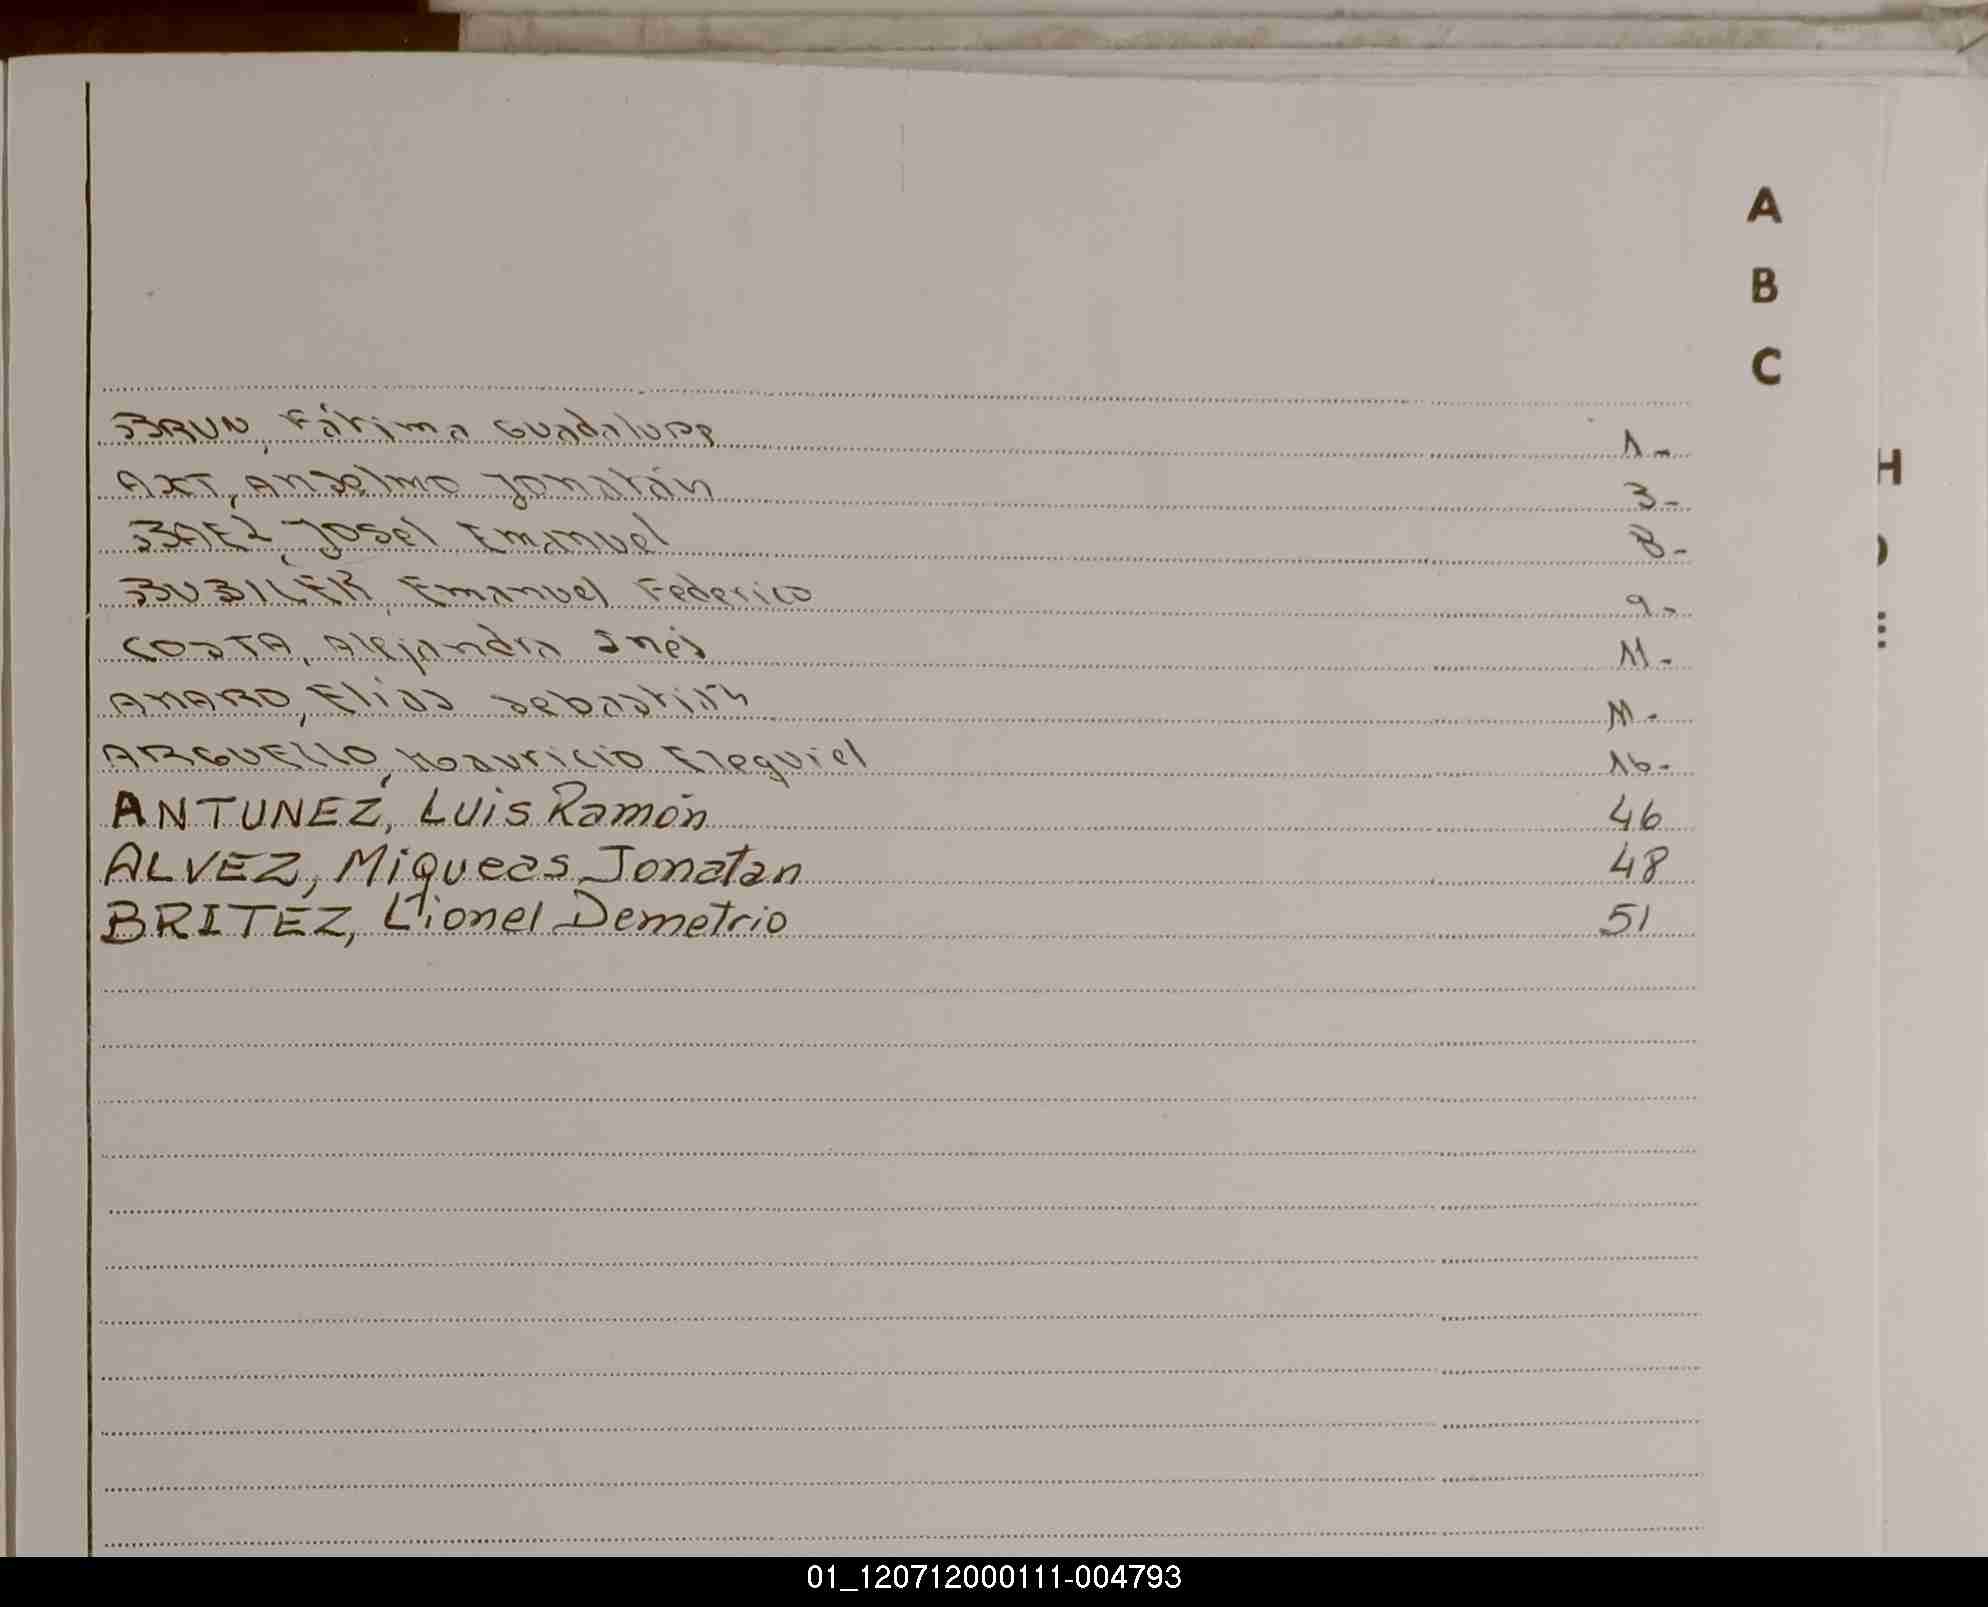 A
B
C
BRUN, Fátima Guadalupe 1-
AXT, Anselmo Jonatán 3-
BAEZ, Josel Emanuel 8-
BUBILLER, Emanuel Federico 9-
COSTA, Alejandra Inés 11-
AMARO, Elías Sebastián 11-
ARGUELLO, Mauricio Ezequiel 16-
ANTUNEZ, Luis Ramón 46
ALVEZ, Miqueas Jonatan 48
BRITEZ, Lionel Demetrio 51
H
01_120712000111-004793